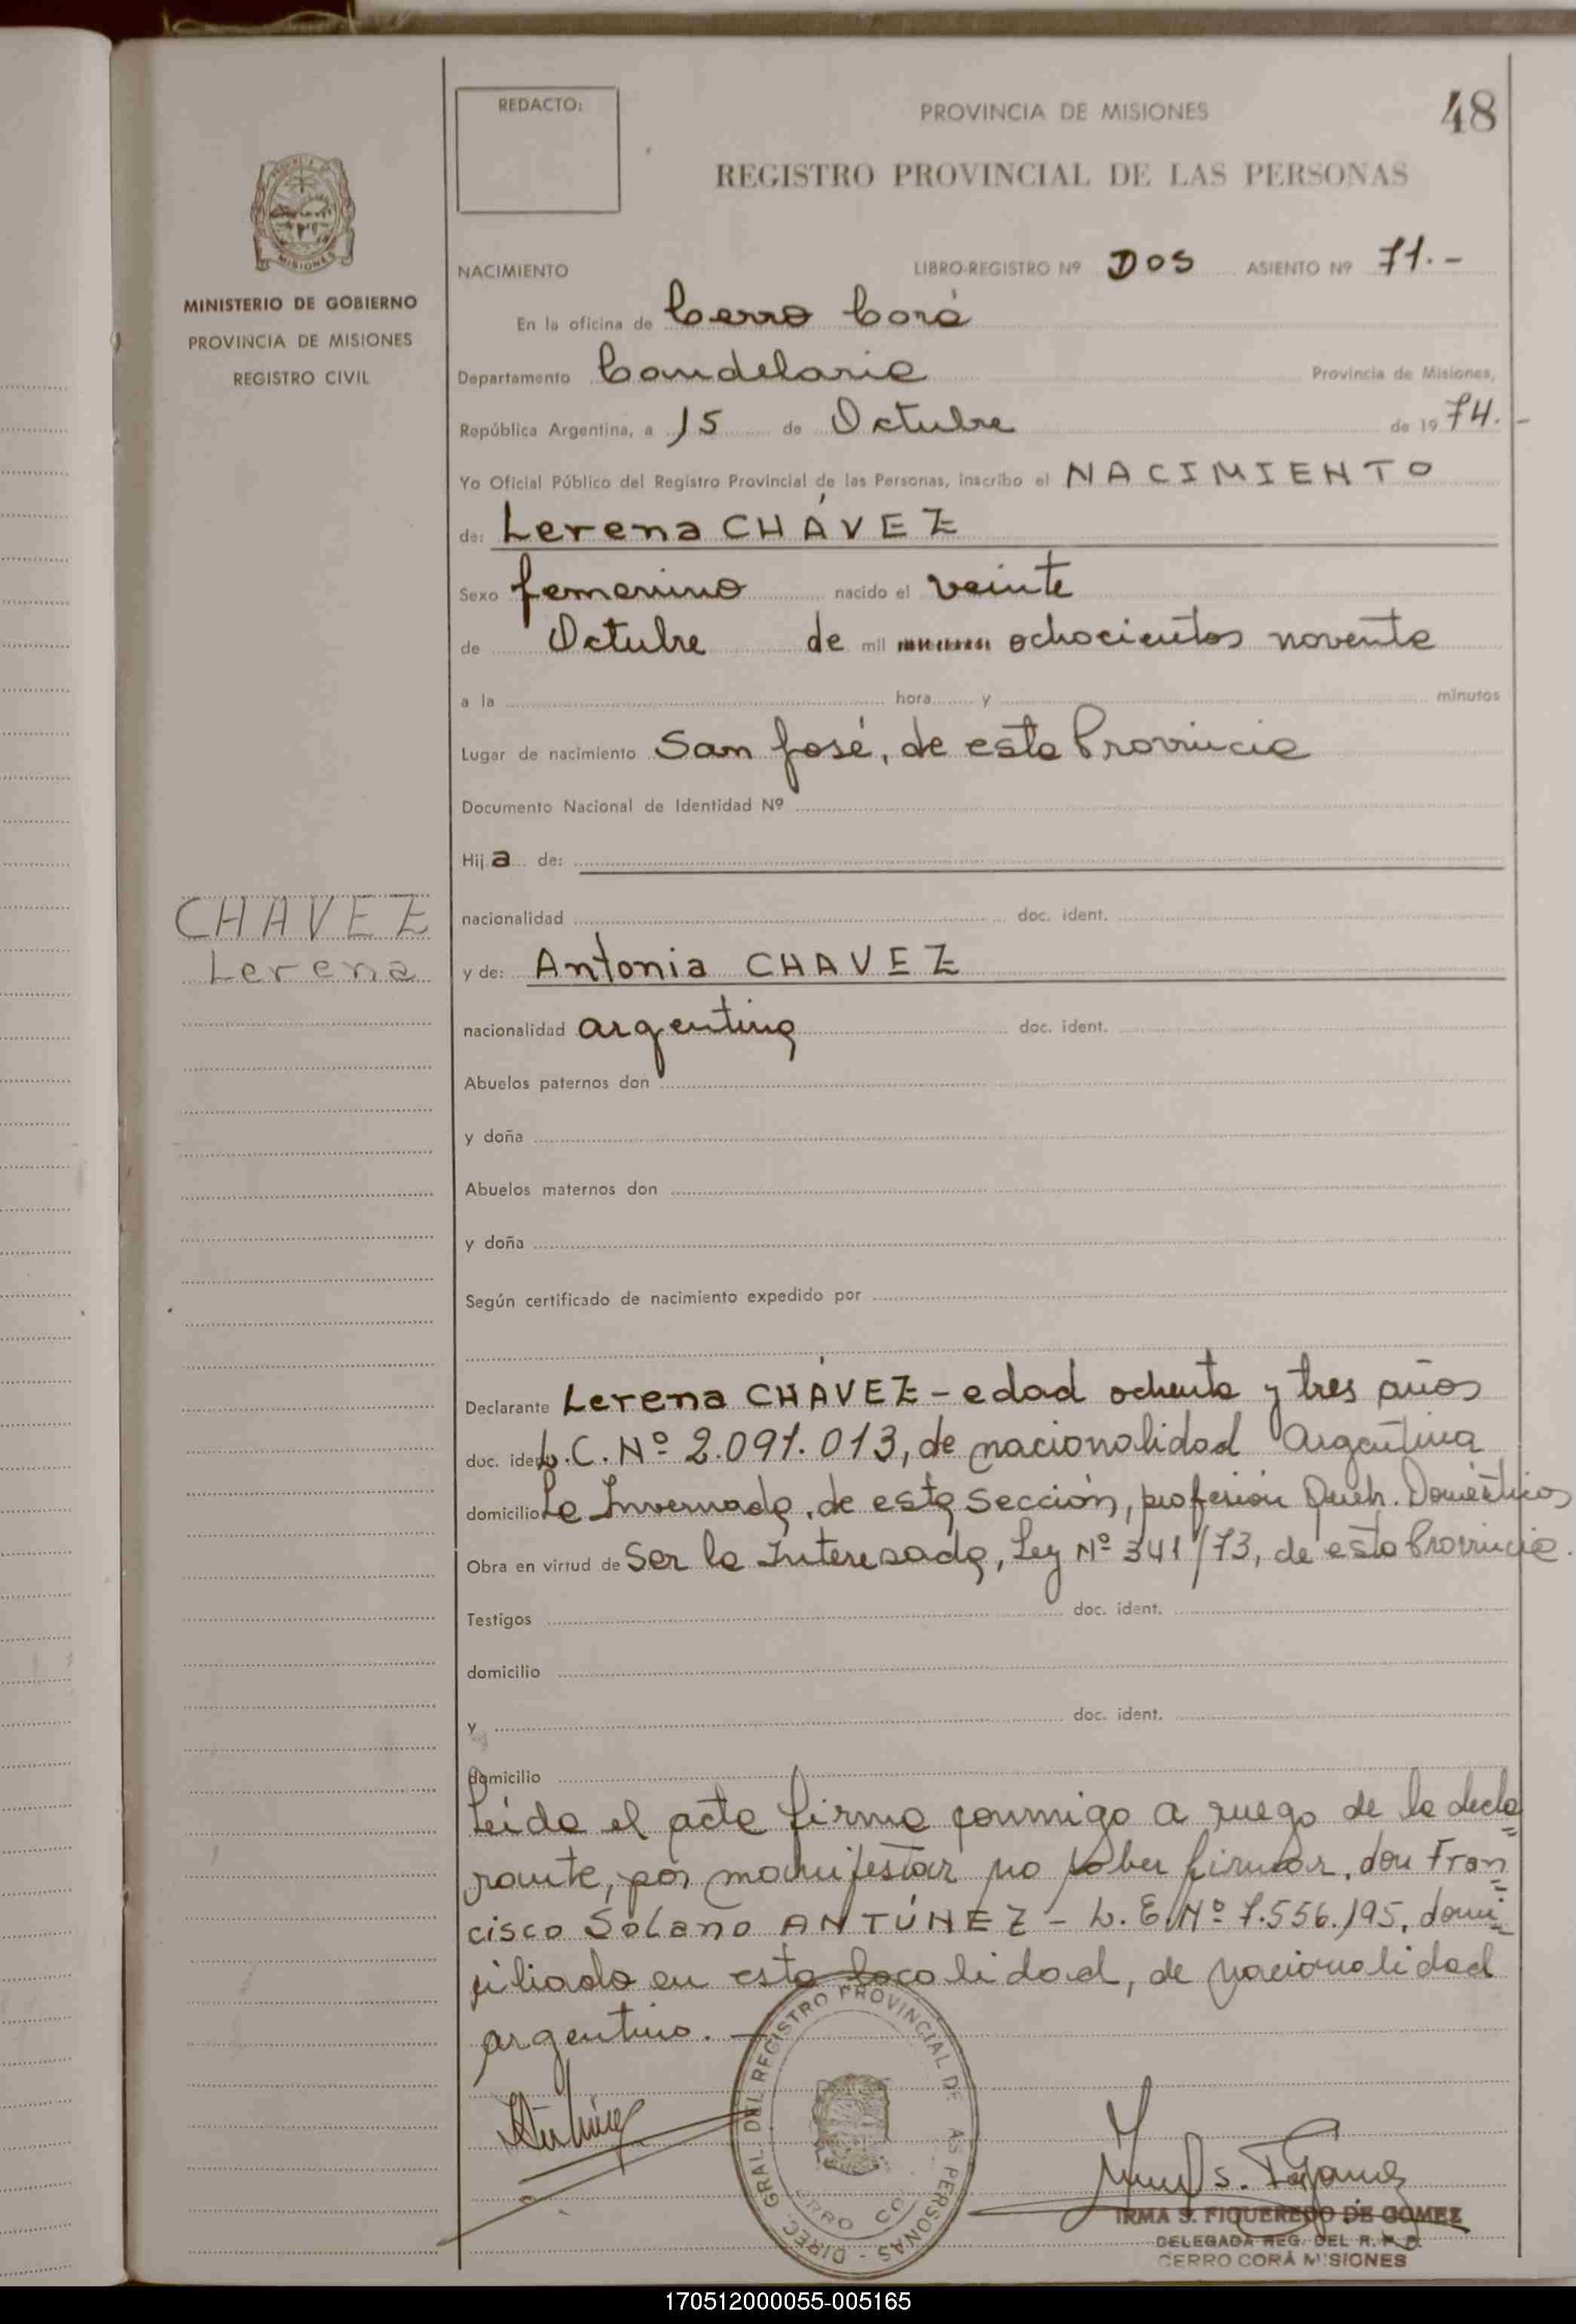 REDACTO:
PROVINCIA DE MISIONES
48
REGISTRO PROVINCIAL DE LAS PERSONAS
MISIONES
MINISTERIO DE GOBIERNO
PROVINCIA DE MISIONES
REGISTRO CIVIL
NACIMIENTO LIBRO-REGISTRO Nº DOS ASIENTO Nº 71.-
En la oficina de Cerro Corá
Departamento Candelaria Provincia de Misiones,
República Argentina, a 15 de Octubre de 1974.-
Yo Oficial Público del Registro Provincial de las Personas, inscribo el NACIMIENTO
de: Lerena CHÁVEZ
Sexo femenino nacido el veinte
de Octubre de mil ochocientos noventa
a la hora y minutos
Lugar de nacimiento San José, de esta Provincia
Documento Nacional de Identidad Nº
Hija de:
CHAVEZ
Lerena
nacionalidad doc. ident.
y de: Antonia CHAVEZ
nacionalidad argentina doc. ident.
Abuelos paternos don
y doña
Abuelos maternos don
y doña
Según certificado de nacimiento expedido por
Declarante Lerena CHÁVEZ - edad ochenta y tres años
doc. ident. L.C. Nº 2.091.013, de nacionalidad Argentina
domicilio La Invernada, de esta Sección, profesión Queh. Domésticos
Obra en virtud de Ser la Interesada, Ley Nº 341/73, de esta Provincia.
Testigos doc. ident.
domicilio
y doc. ident.
domicilio
Leída el acta firma conmigo a ruego de la decla=
rante, por manifestar no saber firmar, don Fran=
cisco Solano ANTÚNEZ - L.E. Nº 7.556.195, domi=
ciliado en esta localidad, de nacionalidad
argentino. -
DIREC. GRAL. DEL REGISTRO PROVINCIAL DE LAS PERSONAS -
CERRO CO
IRMA S. FIGUEREDO DE GOMEZ
DELEGADA REG. DEL R. P. P.
CERRO CORÁ MISIONES
170512000055-005165